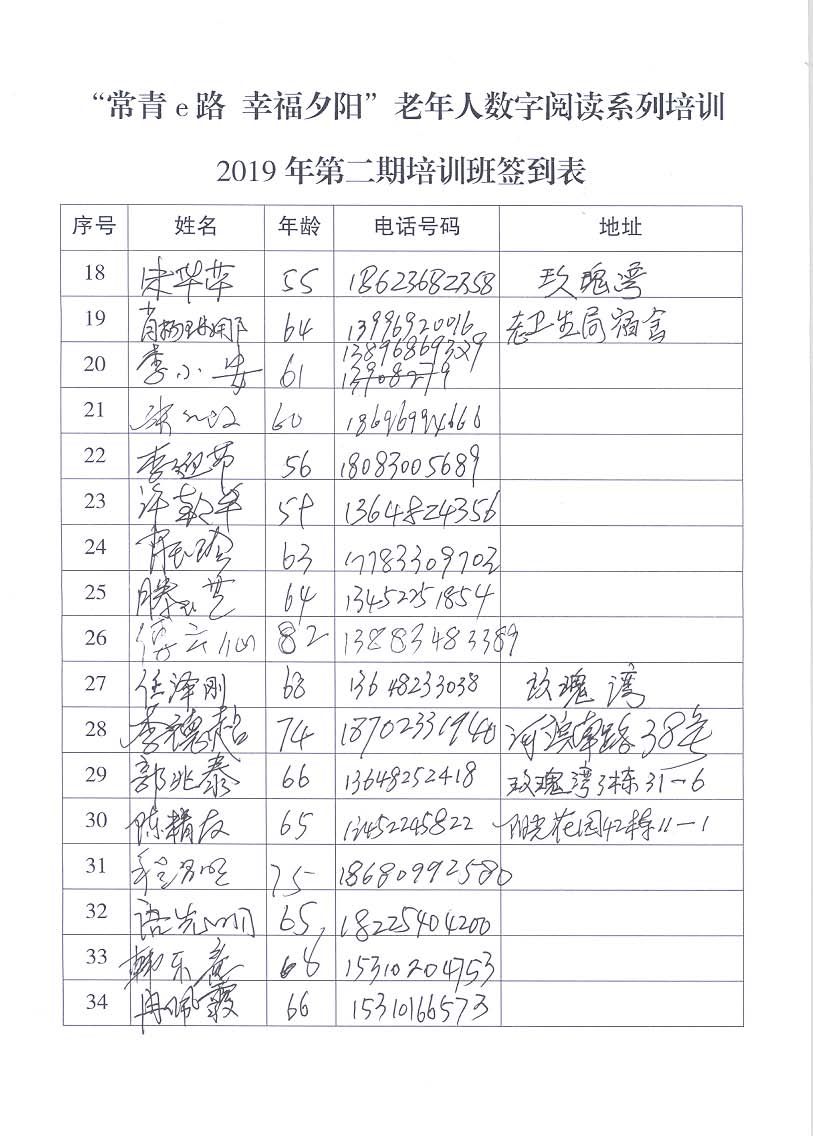 “常青 e 路 幸福夕阳”老年人数字阅读系列培训
2019 年第二期培训班签到表
序号 姓名 年龄 电话号码 地址
18 宋华萍 55 18623682358 玫瑰湾
19 肖 娜 64 13996920016 老卫生局宿舍
20 李小安 61 13896869329
21 60 18696994666
22 李 56 18083005689
23 许 59 13648243356
24 63 17783309703
25 滕 芝 64 13452251854
26 傅云仙 82 13883483389
27 任泽刚 68 13648233038 玫瑰湾
28 李德超 74 18702331940 河滨南路38号
29 郭兆泰 66 13648252418 玫瑰湾3栋31-6
30 陈精友 65 13452245822 阳光花园42栋11-1
31 75 18680992580
32 65 18225404200
33 韩乐意 68 15310204753
34 冉佩霞 66 15310166573